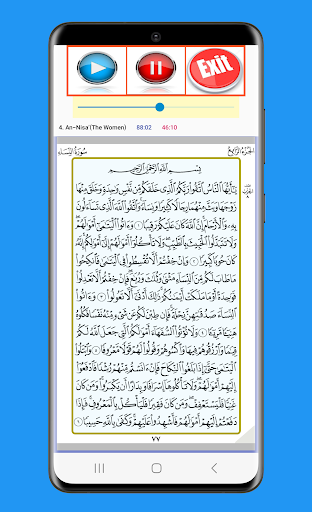 Exit
4. An-Nisa'(The Women) 88:02 46:10
الجزء الرابع سورة النساء
بِسْمِ ٱللَّهِ ٱلرَّحْمَٰنِ ٱلرَّحِيمِ
يَٰٓأَيُّهَا ٱلنَّاسُ ٱتَّقُوا۟ رَبَّكُمُ ٱلَّذِى خَلَقَكُم مِّن نَّفْسٍ وَٰحِدَةٍ وَخَلَقَ مِنْهَا
زَوْجَهَا وَبَثَّ مِنْهُمَا رِجَالًا كَثِيرًا وَنِسَآءً ۚ وَٱتَّقُوا۟ ٱللَّهَ ٱلَّذِى تَسَآءَلُونَ
بِهِۦ وَٱلْأَرْحَامَ ۚ إِنَّ ٱللَّهَ كَانَ عَلَيْكُمْ رَقِيبًا ١ وَءَاتُوا۟ ٱلْيَتَٰمَىٰٓ أَمْوَٰلَهُمْ ۖ
وَلَا تَتَبَدَّلُوا۟ ٱلْخَبِيثَ بِٱلطَّيِّبِ ۖ وَلَا تَأْكُلُوٓا۟ أَمْوَٰلَهُمْ إِلَىٰٓ أَمْوَٰلِكُمْ ۚ إِنَّهُۥ
كَانَ حُوبًا كَبِيرًا ٢ وَإِنْ خِفْتُمْ أَلَّا تُقْسِطُوا۟ فِى ٱلْيَتَٰمَىٰ فَٱنكِحُوا۟
مَا طَابَ لَكُم مِّنَ ٱلنِّسَآءِ مَثْنَىٰ وَثُلَٰثَ وَرُبَٰعَ ۖ فَإِنْ خِفْتُمْ أَلَّا تَعْدِلُوا۟
فَوَٰحِدَةً أَوْ مَا مَلَكَتْ أَيْمَٰنُكُمْ ۚ ذَٰلِكَ أَدْنَىٰٓ أَلَّا تَعُولُوا۟ ٣ وَءَاتُوا۟
ٱلنِّسَآءَ صَدُقَٰتِهِنَّ نِحْلَةً ۚ فَإِن طِبْنَ لَكُمْ عَن شَىْءٍ مِّنْهُ نَفْسًا فَكُلُوهُ
هَنِيٓـًٔا مَّرِيٓـًٔا ٤ وَلَا تُؤْتُوا۟ ٱلسُّفَهَآءَ أَمْوَٰلَكُمُ ٱلَّتِى جَعَلَ ٱللَّهُ لَكُمْ
قِيَٰمًا وَٱرْزُقُوهُمْ فِيهَا وَٱكْسُوهُمْ وَقُولُوا۟ لَهُمْ قَوْلًا مَّعْرُوفًا ٥ وَٱبْتَلُوا۟
ٱلْيَتَٰمَىٰ حَتَّىٰٓ إِذَا بَلَغُوا۟ ٱلنِّكَاحَ فَإِنْ ءَانَسْتُم مِّنْهُمْ رُشْدًا فَٱدْفَعُوٓا۟
إِلَيْهِمْ أَمْوَٰلَهُمْ ۖ وَلَا تَأْكُلُوهَآ إِسْرَافًا وَبِدَارًا أَن يَكْبَرُوا۟ ۚ وَمَن كَانَ
غَنِيًّا فَلْيَسْتَعْفِفْ ۖ وَمَن كَانَ فَقِيرًا فَلْيَأْكُلْ بِٱلْمَعْرُوفِ ۚ فَإِذَا
دَفَعْتُمْ إِلَيْهِمْ أَمْوَٰلَهُمْ فَأَشْهِدُوا۟ عَلَيْهِمْ ۚ وَكَفَىٰ بِٱللَّهِ حَسِيبًا ٦
٧٧